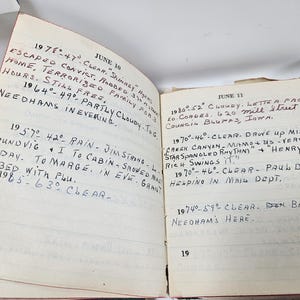 JUNE 10
1978 - 47° - CLEAR.
ESCAPED CONVICT, INVADED
HOME, TERRORISED FAMILY FOR
HOURS. STILL FREE.
1964 - 49° - PARTLY CLOUDY. TOO
NEEDHAMS IN EVENING.
1957 42° RAIN. JIM STRONG
& I TO CABIN.
DAY. TO MARGE. IN EVE.
BED WITH FLU.
1965 - 63° CLEAR.
JUNE 11
1980 - 52° CLOUDY. LETTER FROM
ED. COADES. 620 MILL STREET
COUNCIL BLUFFS, IOWA.
1970 - 46° - CLEAR. DROVE UP M
CREEK CANYON. MAMA & US -
"STARSPANGLED RHYTHM" & "HENRY
RICH SWINGS IT"
1970 - 46° - CLEAR. PAUL
HELPING IN MAIL DEPT.
1974 - 59° CLEAR.
NEEDHAM'S HERE.
19